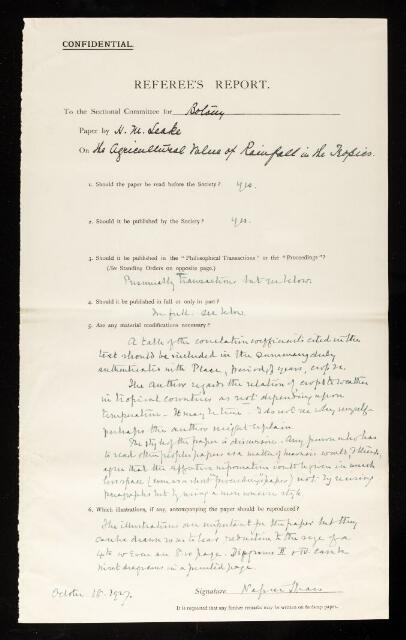 CONFIDENTIAL.
REFEREE'S REPORT.
To the Sectional Committee for Botany
Paper by H. M. Leake
On the Agricultural Value of Rainfall in the Tropics.
1. Should the paper be read before the Society? yes.
2. Should it be published by the Society? yes.
3. Should it be published in the "Philosophical Transactions" or the "Proceedings"?
(See Standing Orders on opposite page.)
Presumably Transactions but see below.
4. Should it be published in full or only in part?
In full. see below
5. Are any material modifications necessary?
A table of the correlation coefficients cited in the
text should be included in the summary duly
authenticated with the Place, period of years, crop &c.
The Author regards the relation of crops to weather
in tropical countries as not depending upon
temperature - It may be true - I do not see why myself -
perhaps the author might explain.
The style of the paper is discursive. Any person who has
to read other peoples papers as a matter of business would, I think,
agree that the effective information could be given in much
less space ( "Proceedings" paper) not by excising
paragraphs but by using a more concise style.
6. Which illustrations, if any, accompanying the paper should be reproduced?
The illustrations are important for the paper but they
can be drawn so as to bear reduction to the size of a
4to or even an 8vo page. Diagrams II & IV can be
inset diagrams in a printed page.
October 18. 1927. Signature Napier Shaw
It is requested that any further remarks may be written on foolscap paper.